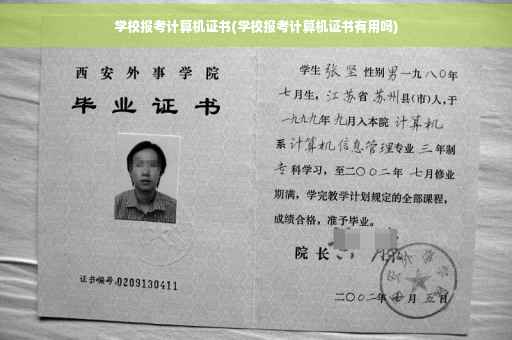 学校报考计算机证书(学校报考计算机证书有用吗)
西安外事学院
毕业证书
证书编号:0209130411
学生张坚性别男一九八〇年
七月生,江苏省苏州县(市)人,于
一九九九年九月入本院计算机
系计算机信息管理专业三年制
专科学习,至二〇〇二年七月修业
期满,学完教学计划规定的全部课程,
成绩合格,准予毕业。
院长
二〇〇二年 月五日